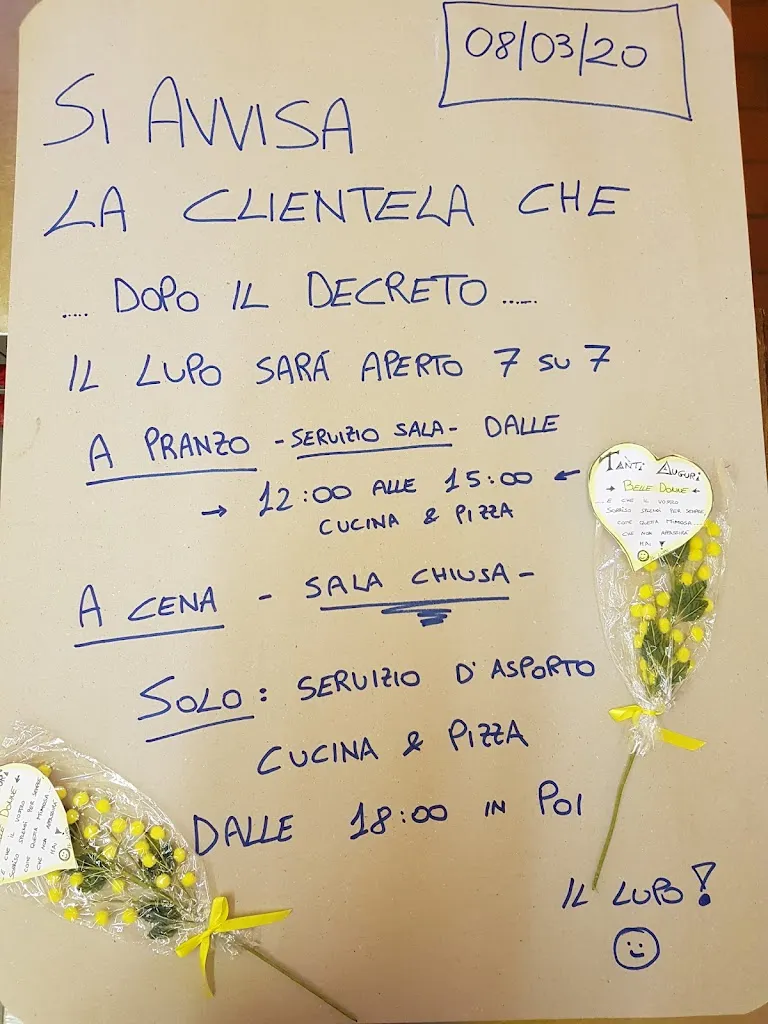 08/03/20
SI AVVISA
LA CLIENTELA CHE
..... DOPO IL DECRETO ......
IL LUPO SARÁ APERTO 7 SU 7
A PRANZO - SERVIZIO SALA - DALLE
→ 12:00 ALLE 15:00 ←
CUCINA & PIZZA
A CENA - SALA CHIUSA -
SOLO: SERVIZIO D'ASPORTO
CUCINA & PIZZA
DALLE 18:00 IN POI
IL LUPO!
TANTi AUGURi
→ BELLE DONNE ←
....E CHE IL VOSTRO
SORRISO SPLENDI PER SEMPRE
COME QUESTA MIMOSA....
CHE NON APPASSIRÁ
MAI !
DONNE ←
E CHE IL VOSTRO
SORRISO SPLENDI PER SEMPRE
COME QUESTA MIMOSA
CHE NON APPASSIRÁ
MAI !